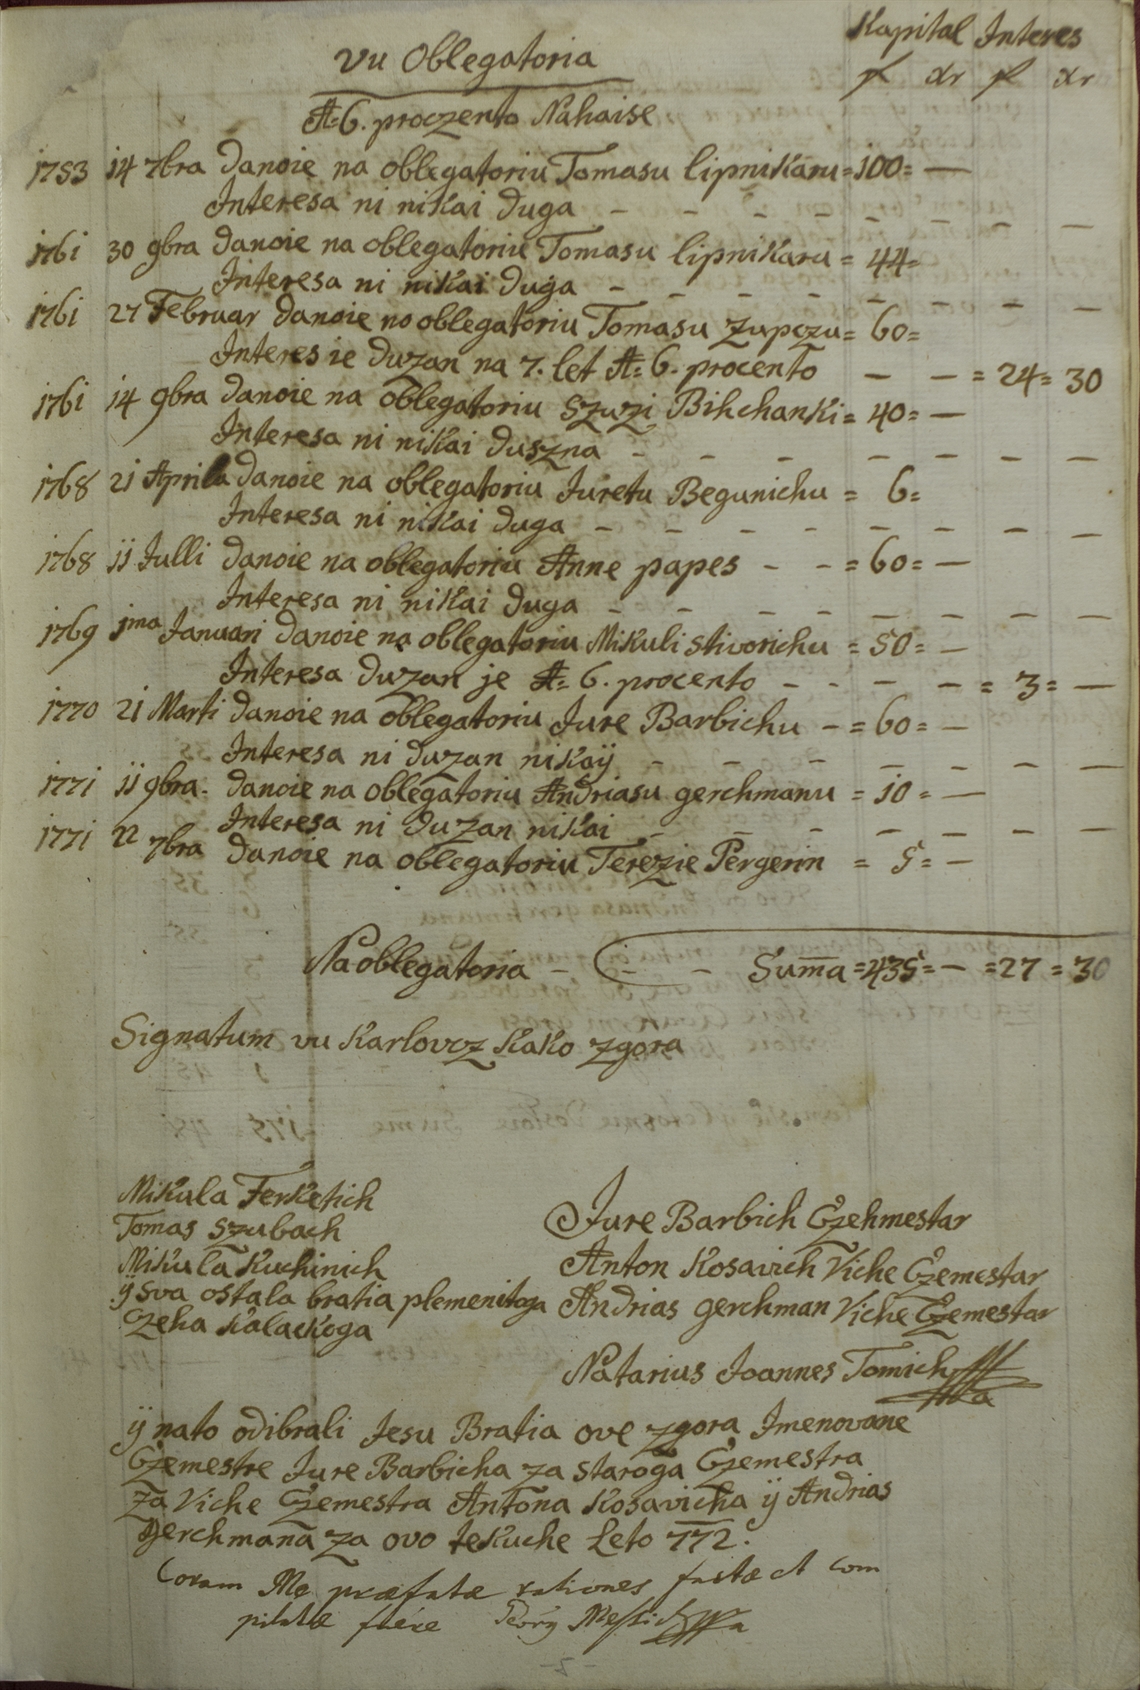 Kapital Interes
vu Oblegatoria
fl xr fl xr
A= 6. proczento Nahaise
1753 14 7bra danoie na oblegatoriu Tomasu lipnikaru = 100 = —
Interesa ni nikai duga — — — — — — — —
1761 30 9bra danoie na oblegatoriu Tomasu lipnikaru = 44 =
Interesa ni nikai duga — — — — — — — —
1761 27 Februar danoie no oblegatoriu Tomasu Zupczu = 60 =
Interes ie duzan na 7. let A= 6. procento — — = 24 = 30
1761 14 9bra danoie na oblegatoriu Szuzi Bihchanki = 40 = —
Interesa ni nikai duszna — — — — — — — —
1768 21 Aprila danoie na oblegatoriu Juretu Begunichu = 6 =
Interesa ni nikai duga — — — — — — — —
1768 11 Julli danoie na oblegatoriu Anne papes - - = 60 = —
Interesa ni nikai duga — — — — — — — —
1769 1ma Januari danoie na oblegatoriu Mikuli Stivorichu = 50 = —
Interesa duzan je A= 6. procento - - — — = 3 = —
1770 21 Marti danoie na oblegatoriu Jure Barbichu - = 60 = —
Interesa ni duzan nikaÿ — — — — — — —
1771 11 9bra. danoie na oblegatoriu Andriasu gerchmanu = 10 = —
Interesa ni duzan nikai — — — — — — —
1771 22 7bra danoie na oblegatoriu Terezie Pergerin = 5 = —
Na oblegatoria - - - Sum̄a = 435 = — = 27 = 30
Signatum vu Karlovcz kako zgora
Mikula Ferketich
Tomas Szubach
Mikula Kuchinich
ÿ sva ostala bratia plemenitoga
Czeha kalackoga
Jure Barbich Czehmestar
Anton Kosavich Viche Czemestar
Andrias gerchman Viche Czemestar
Natarius Joannes Tomich
ÿ nato odibrali Jesu Bratia ove zgora Imenovane
Czemestre Jure Barbicha za staroga Czemestra
za Viche Czemestra Antona Kosavicha ÿ Andrias
gerchmana za ovo tekuche Leto 772.
Coram Me præfatæ rationes factæ et com
pilatæ fuere Georg